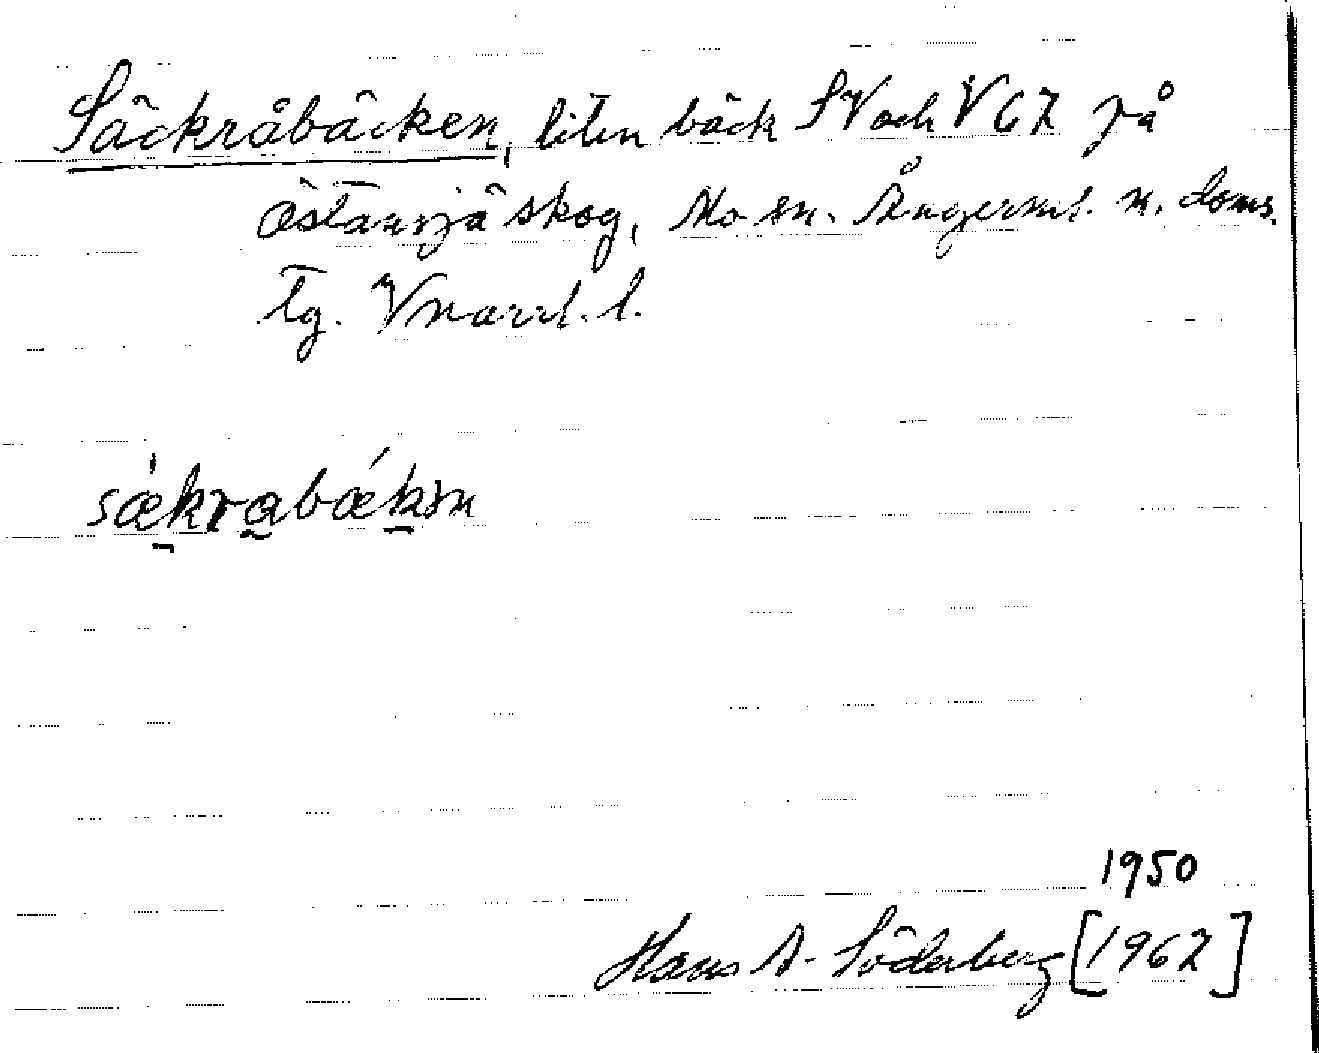 Säckråbäcken, liten bäck SV och V 67 på
Östansjö skog, Mo sn. Ångerml. n. doms.
tg. Vnorrl. l.
sækrabækən
1950
Hans A. Söderberg [1962]